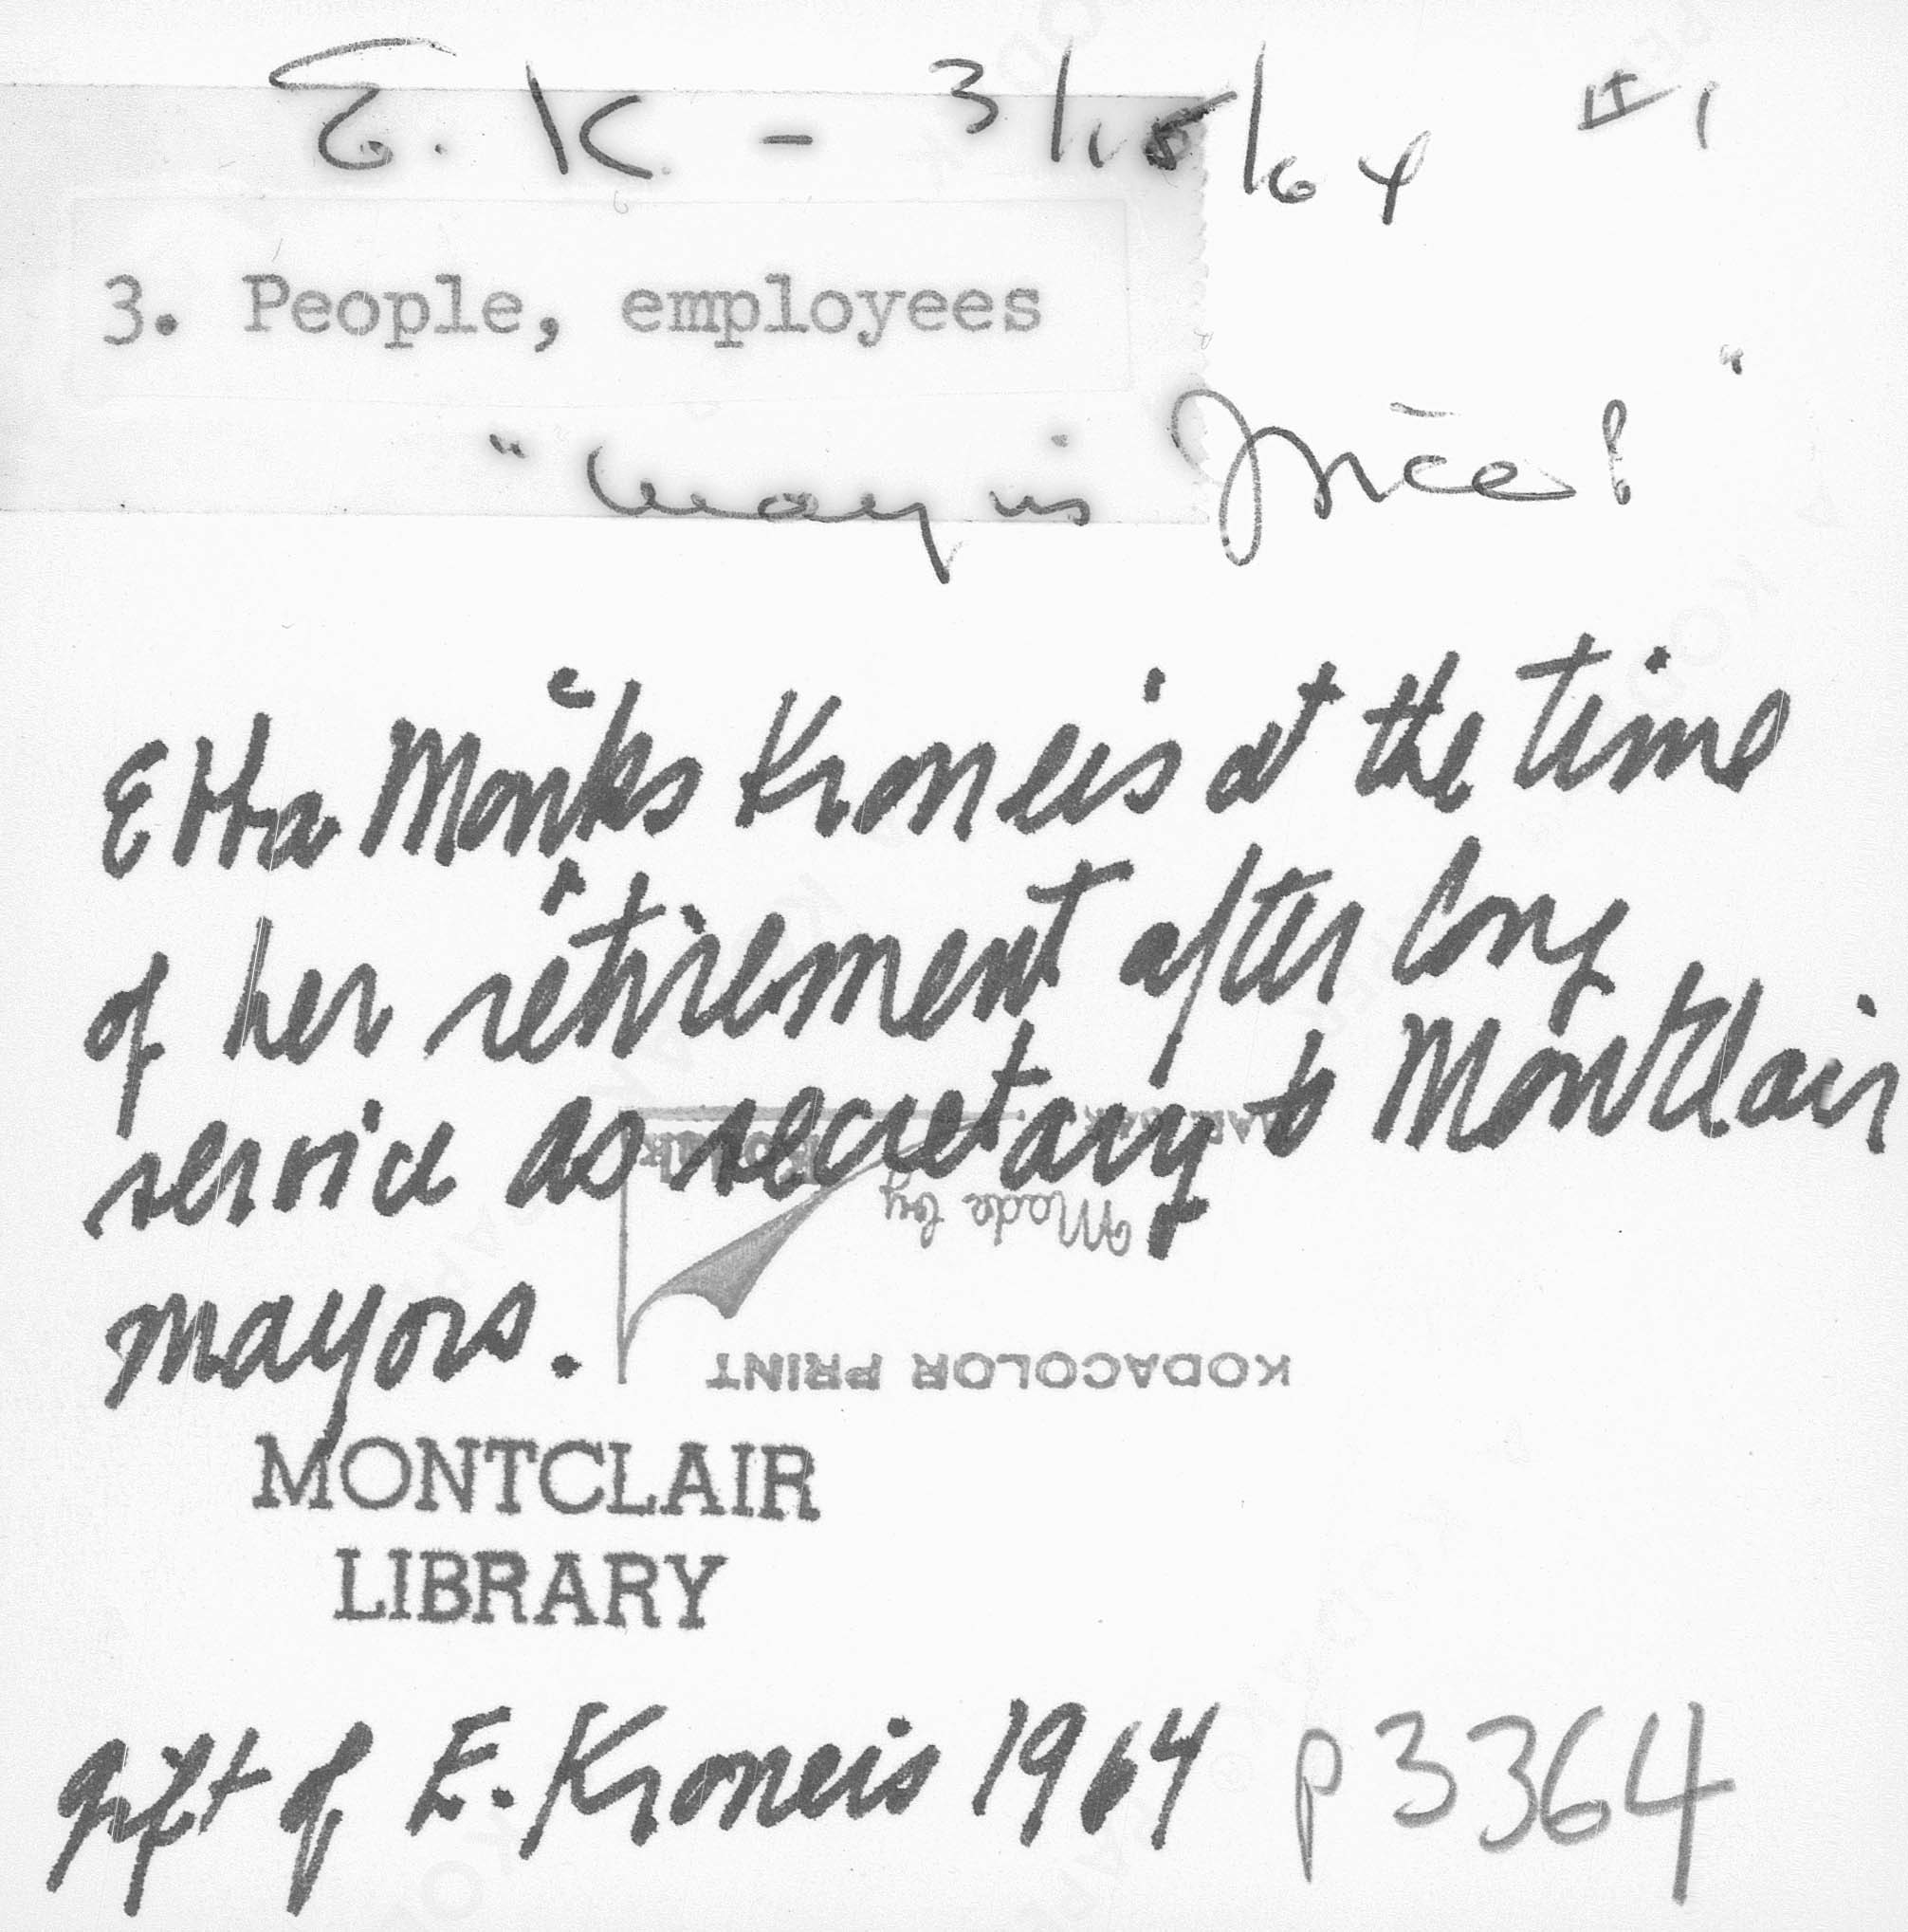 E. K. - 3/15/64 #1
3. People, employees
Etta Monks Kroneis at the time
of her retirement after long
service as secretary to Montclair
mayors.
Made by Kodak
KODACOLOR PRINT
MONTCLAIR
LIBRARY
gift of E. Kroneis 1964 p3364